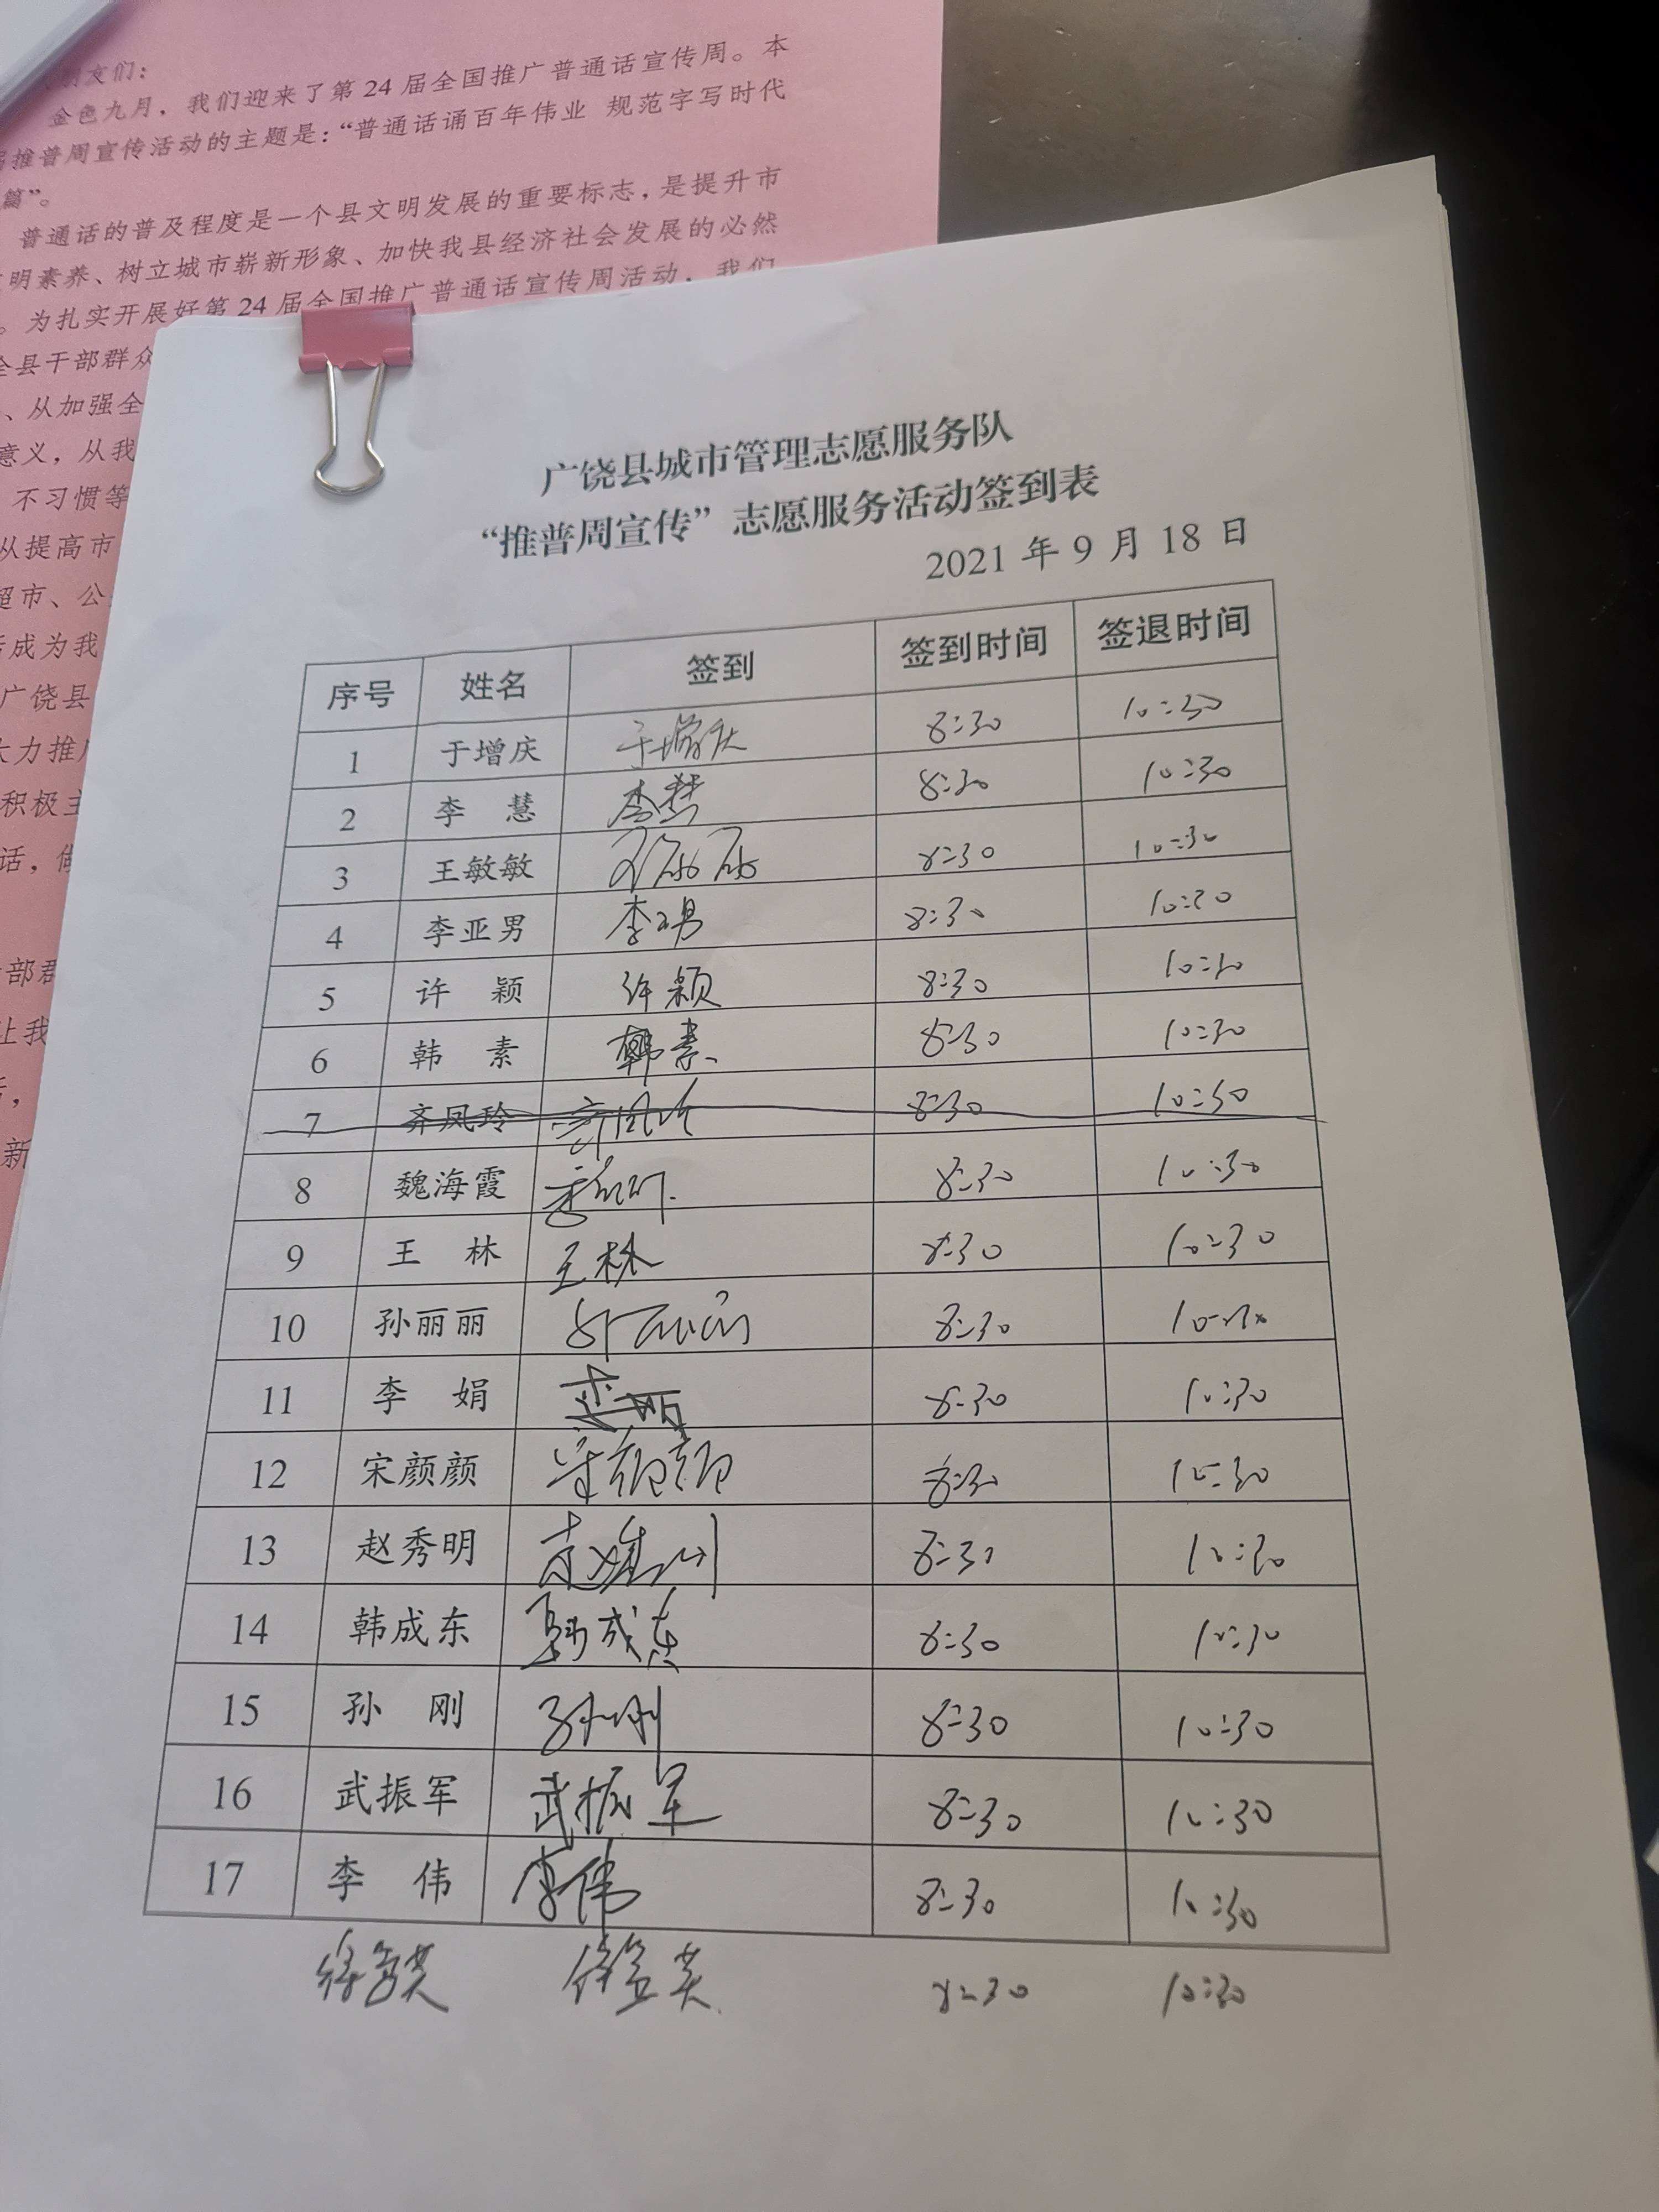 朋友们：
金色九月，我们迎来了第24届全国推广普通话宣传周。本
届推普周宣传活动的主题是：“普通话诵百年伟业 规范字写时代
篇”。
普通话的普及程度是一个县文明发展的重要标志，是提升市
明素养、树立城市崭新形象、加快我县经济社会发展的必然
。为扎实开展好第24届全国推广普通话宣传周活动，我们
全县干部群众
、从加强全
意义，从我
不习惯等
从提高市
超市、公
成为我
广饶县
大力推广
积极主
话，做
部群
让我
新
广饶县城市管理志愿服务队
“推普周宣传”志愿服务活动签到表
2021年9月18日
序号 姓名 签到 签到时间 签退时间
1 于增庆 于增庆 8:30 10:30
2 李 慧 李慧 8:30 10:30
3 王敏敏 王敏敏 8:30 10:30
4 李亚男 李亚男 8:30 10:30
5 许 颖 许颖 8:30 10:30
6 韩 素 韩素 8:30 10:30
7 齐凤玲 齐凤玲 8:30 10:30
8 魏海霞 8:30 10:30
9 王 林 王林 8:30 10:30
10 孙丽丽 孙丽丽 8:30 10:30
11 李 娟 8:30 10:30
12 宋颜颜 宋颜颜 8:30 10:30
13 赵秀明 赵秀明 8:30 10:30
14 韩成东 韩成东 8:30 10:30
15 孙 刚 孙刚 8:30 10:30
16 武振军 武振军 8:30 10:30
17 李 伟 李伟 8:30 10:30
8:30 10:30